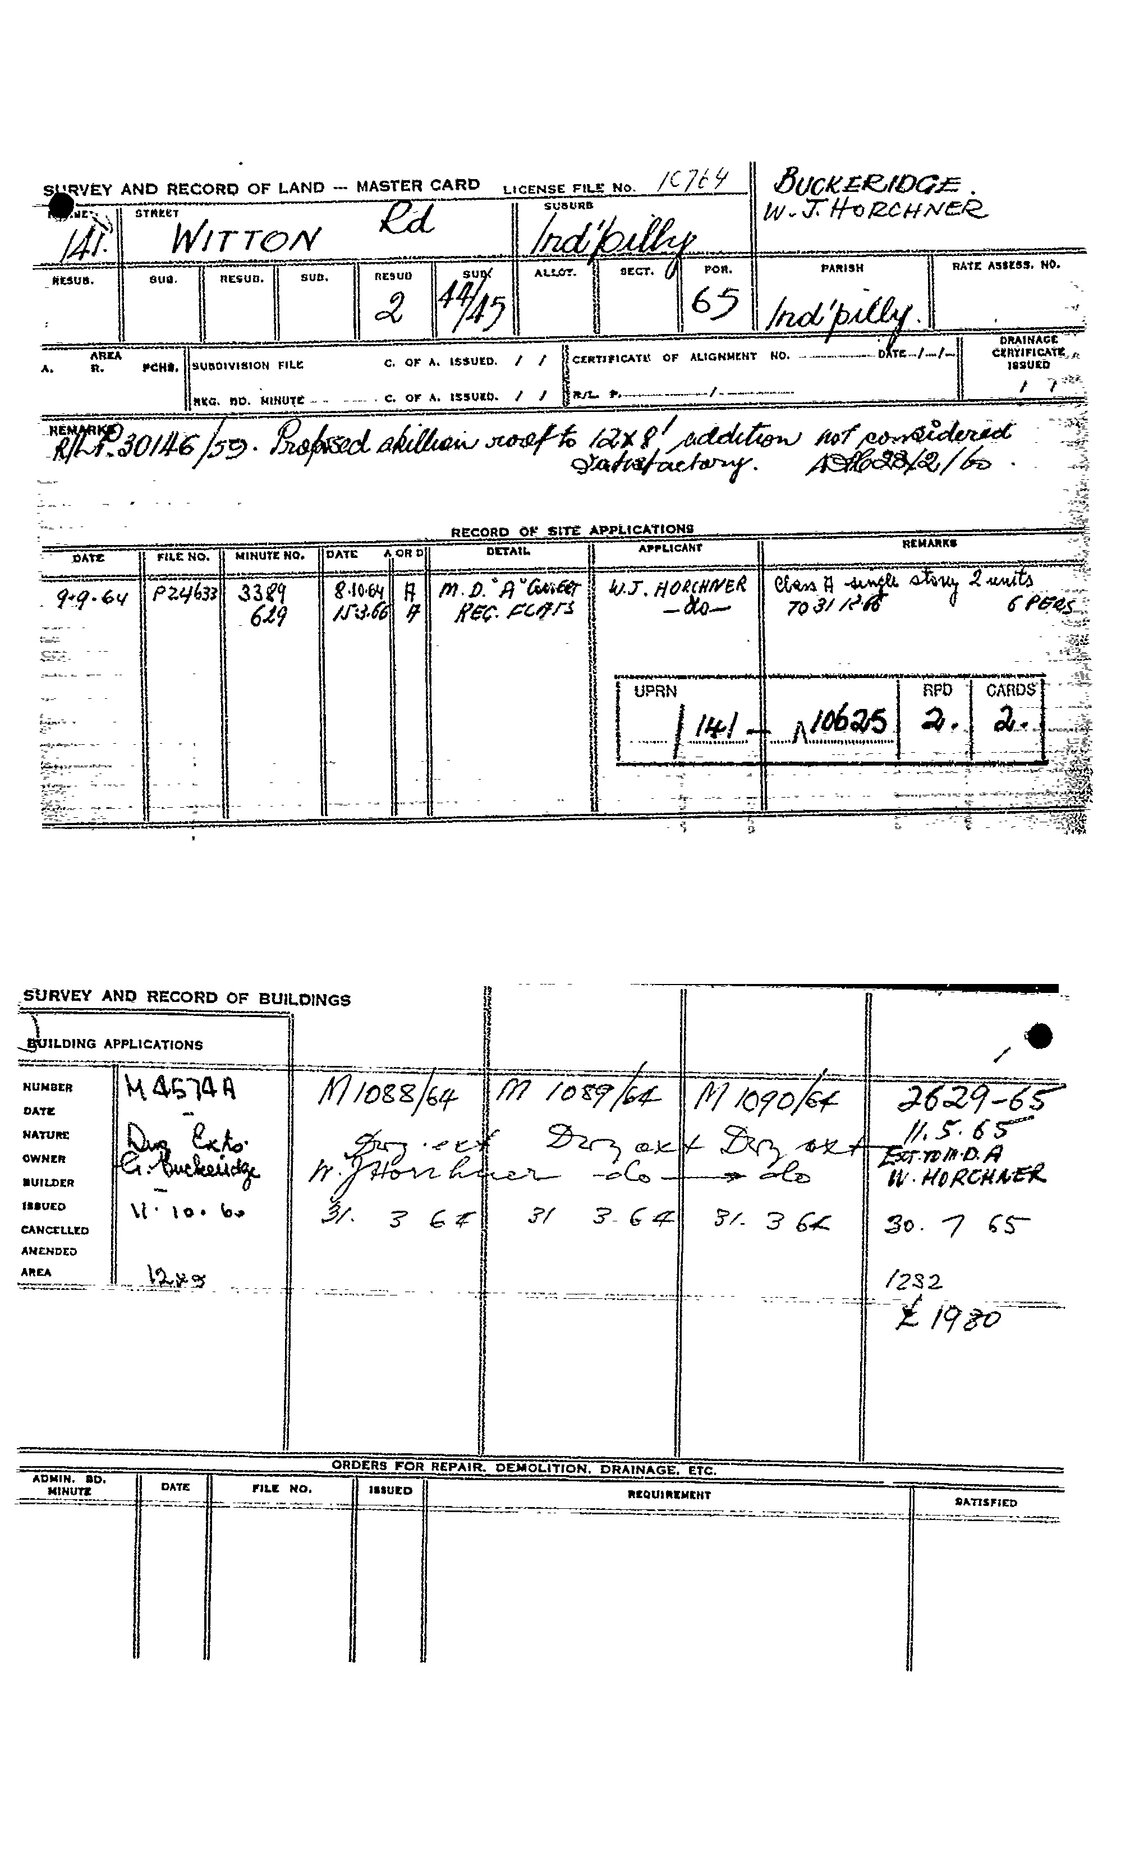 SURVEY AND RECORD OF LAND — MASTER CARD LICENSE FILE No. 10764
BUCKERIDGE.
W. J. HORCHNER
STREET SUBURB
141. WITTON Rd Ind'pilly
RESUB. SUB. RESUD. SUB. RESUD SUB. ALLOT. SECT. POR. PARISH RATE ASSESS. NO.
2 44/45 65 Ind'pilly.
AREA
A. R. PCHS.
SUBDIVISION FILE C. OF A. ISSUED. / /
CERTIFICATE OF ALIGNMENT NO. DATE / /
DRAINAGE CERTIFICATE ISSUED
REG. BD. MINUTE C. OF A. ISSUED. / / R/L P. / / /
REMARKS
R/L P. 30146/59. Proposed skillion roof to 12x8' addition not considered
satisfactory. 23/2/60.
RECORD OF SITE APPLICATIONS
DATE FILE NO. MINUTE NO. DATE A OR D DETAIL APPLICANT REMARKS
9.9.64 P24633 3389 8.10.64 A M.D. "A" W.J. HORCHNER Class A single story 2 units
629 15.3.66 A REG. FLATS —do— TO 31 12 66 6 PERS
UPRN RPD CARDS
/ 141 — 10625 2. 2.
SURVEY AND RECORD OF BUILDINGS
BUILDING APPLICATIONS
NUMBER M4574A M1088/64 M 1089/64 M 1090/64 2629-65
DATE — 11.5.65
NATURE Dwg Exts. Dwg ext Dwg ext Dwg ext EXT. TO M.D. A
OWNER G. Buckeridge W. J Horchner —do— do W. HORCHNER
BUILDER —
ISSUED 11.10.60 31. 3 64 31 3.64 31. 3 64 30. 7 65
CANCELLED
AMENDED
AREA 12x8 1232
£ 1980
ORDERS FOR REPAIR, DEMOLITION, DRAINAGE, ETC.
ADMIN. BD. MINUTE DATE FILE NO. ISSUED REQUIREMENT SATISFIED